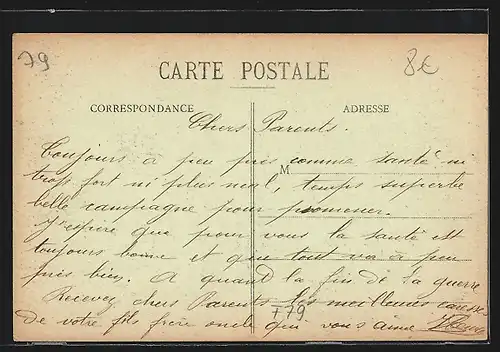 79
8€
CARTE POSTALE
CORRESPONDANCE
ADRESSE
Chers Parents.
Toujours à peu près comme santé ni
M
trop fort ni plus mal, temps superbe
belle campagne pour promener.
J'espère que pour vous la santé est
toujours bonne et que tout va à peu
près bien. A quand la fin de la guerre
Recevez chers Parents les meilleures caresses
de votre fils frère oncle qui vous aime
+79